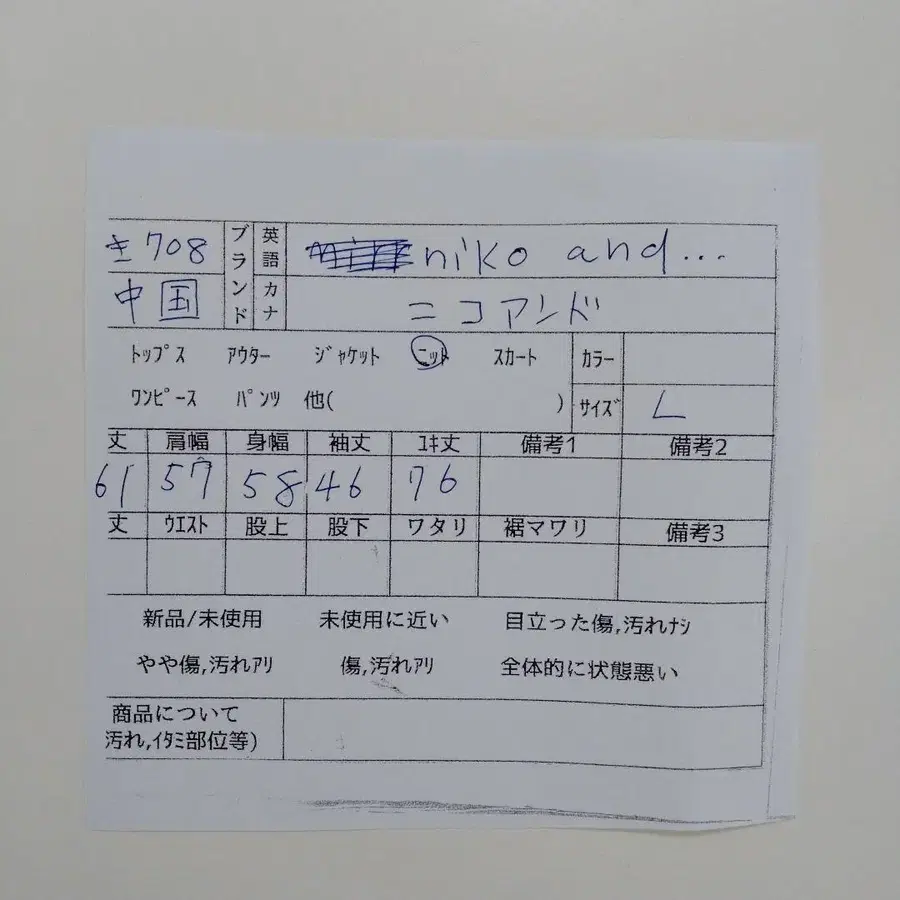 き708 ブランド 英語 niko and...
中国 カナ ニコアンド
トップス アウター ジャケット ニット スカート カラー
ワンピース パンツ 他( ) サイズ L
丈 肩幅 身幅 袖丈 ユキ丈 備考1 備考2
61 57 58 46 76
丈 ウエスト 股上 股下 ワタリ 裾マワリ 備考3
新品/未使用 未使用に近い 目立った傷,汚れナシ
やや傷,汚れアリ 傷,汚れアリ 全体的に状態悪い
商品について
汚れ,イタミ部位等)